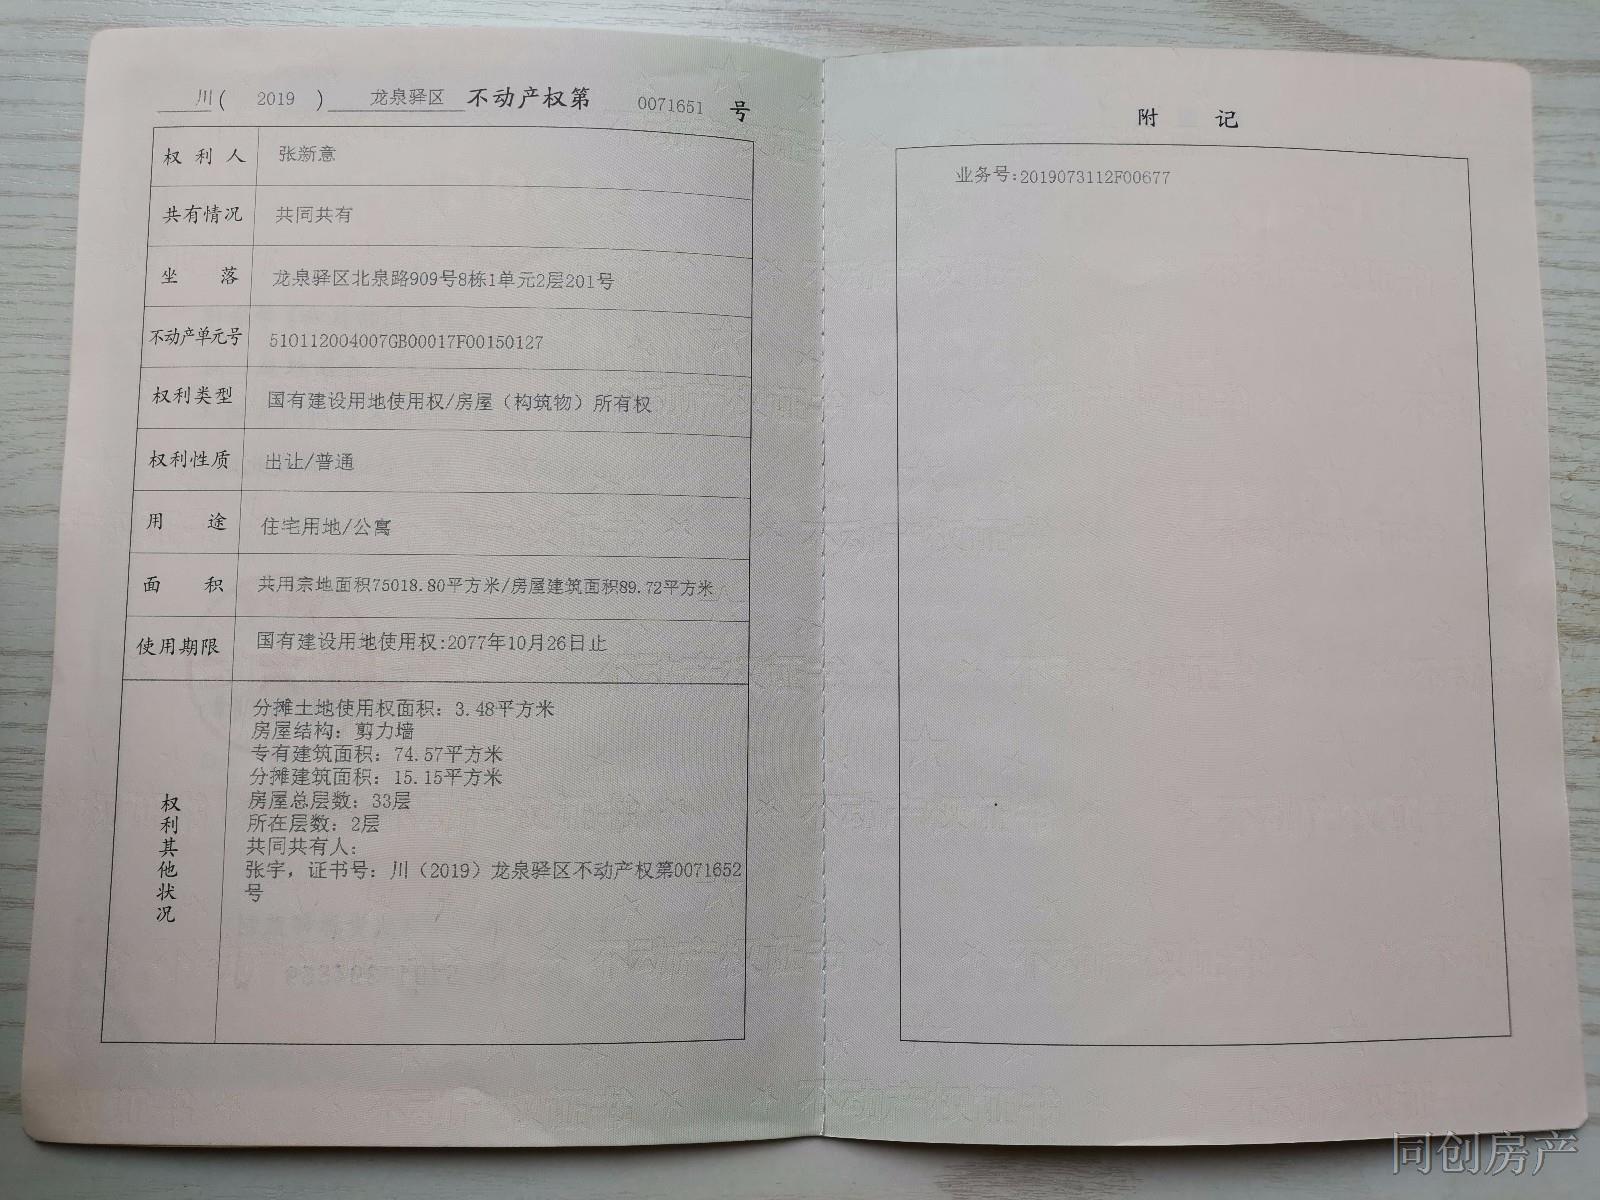 川( 2019 ) 龙泉驿区 不动产权第 0071651 号
权利人 张新意
共有情况 共同共有
坐落 龙泉驿区北泉路909号8栋1单元2层201号
不动产单元号 510112004007GB00017F00150127
权利类型 国有建设用地使用权/房屋（构筑物）所有权
权利性质 出让/普通
用途 住宅用地/公寓
面积 共用宗地面积75018.80平方米/房屋建筑面积89.72平方米
使用期限 国有建设用地使用权:2077年10月26日止
权利其他状况
分摊土地使用权面积：3.48平方米
房屋结构：剪力墙
专有建筑面积：74.57平方米
分摊建筑面积：15.15平方米
房屋总层数：33层
所在层数：2层
共同共有人：
张宇，证书号：川（2019）龙泉驿区不动产权第0071652
号
附 记
业务号:2019073112F00677
同创房产